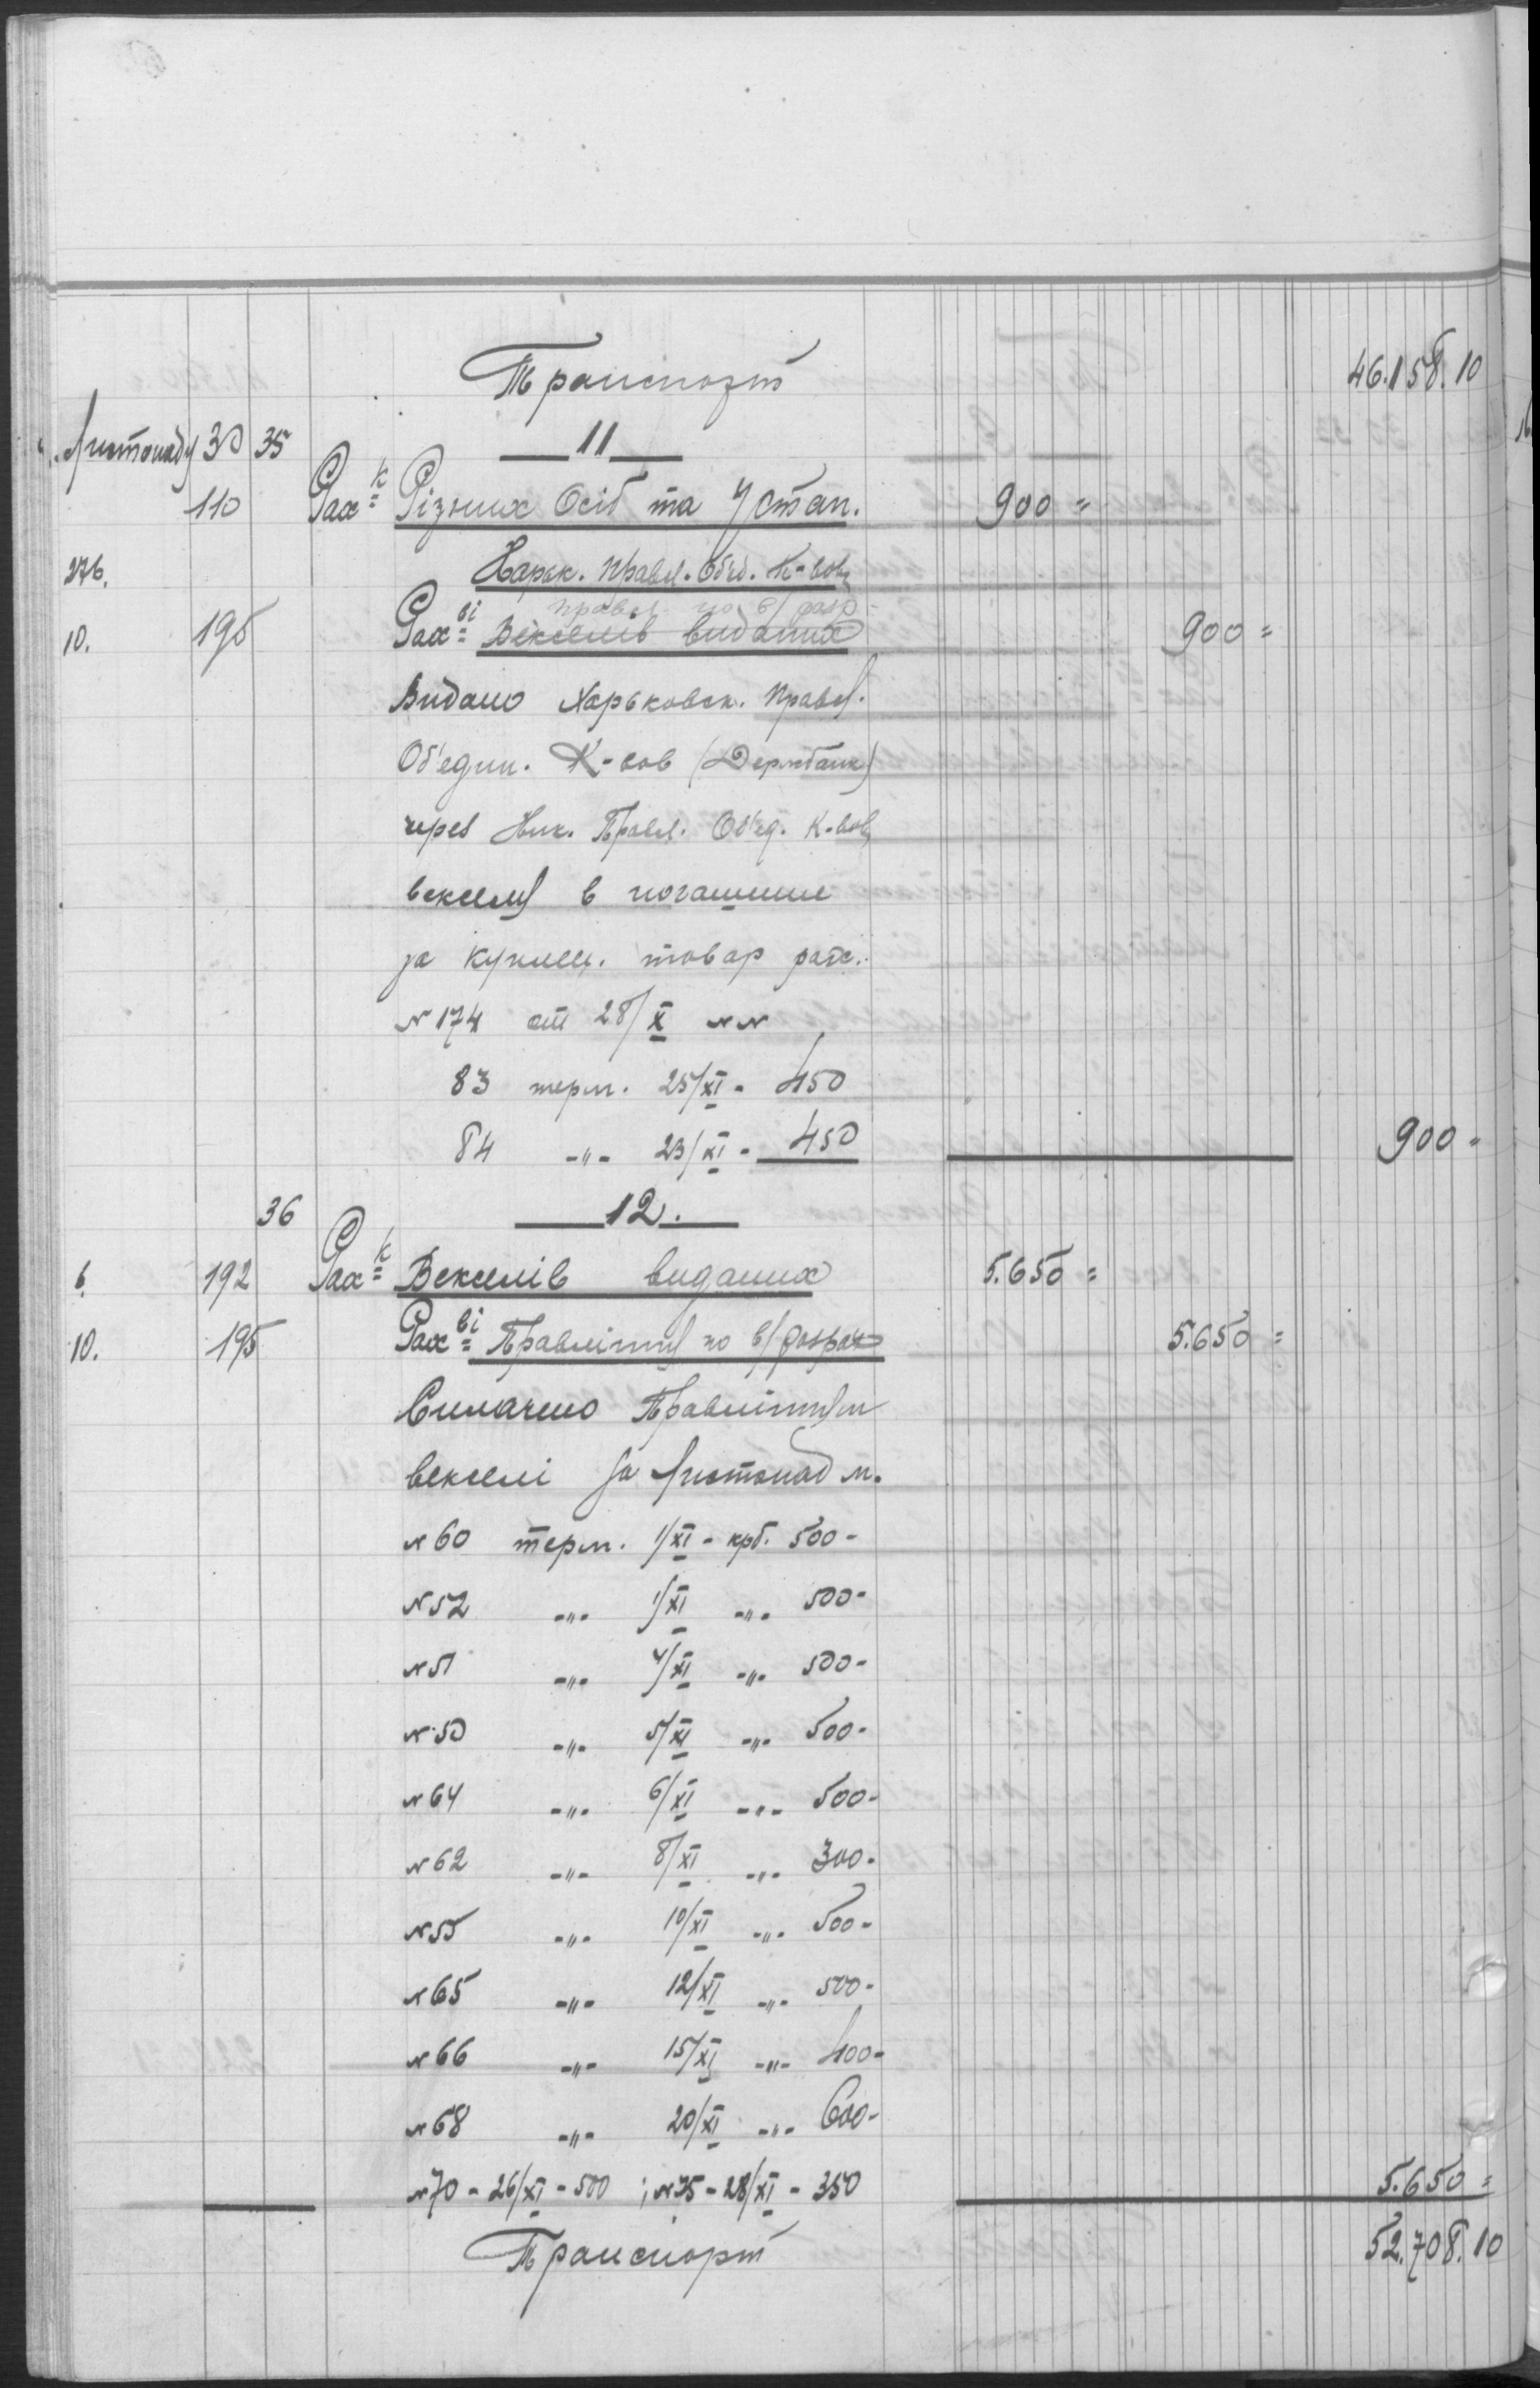 Транспорт 46.158.10
Листопад 30 35 — 11 —
110 Рах-к Різних Осіб та Устан. 900 =
276. Харьк. Правл. Об'єд. К-вов
правл. по в/ розр-
10. 195 Рах-ві Векселів виданих 900 =
Видано Харьковск. Правл.
Об'един. К-вов (Держбанк)
через Ник. Правл. Об'ед. К-вов
векселя в погашение
за куплен. товар рах.
№174 от 28/X №№
83 терм. 25/XI - 450
84 -"- 23/XI - 450 900 -
36 — 12. —
6. 192 Рах-к Векселів виданих 5.650 =
10. 195 Рах-ві Правлінню по в/розрах 5.650 =
Сплачено Правлінням
векселі за листопад м.
№60 терм. 1/XI - крб. 500 -
№52 -"- 1/XI -"- 500 -
№51 -"- 4/XI -"- 500 -
№50 -"- 5/XI -"- 500 -
№64 -"- 6/XI -"- 500 -
№62 -"- 8/XI -"- 300 -
№55 -"- 10/XI -"- 500 -
№65 -"- 12/XI -"- 500 -
№66 -"- 15/XI -"- 400 -
№68 -"- 20/XI -"- 600 -
№70 - 26/XI - 500 ; №75 - 28/XI - 350 5.650 =
Транспорт 52.708.10